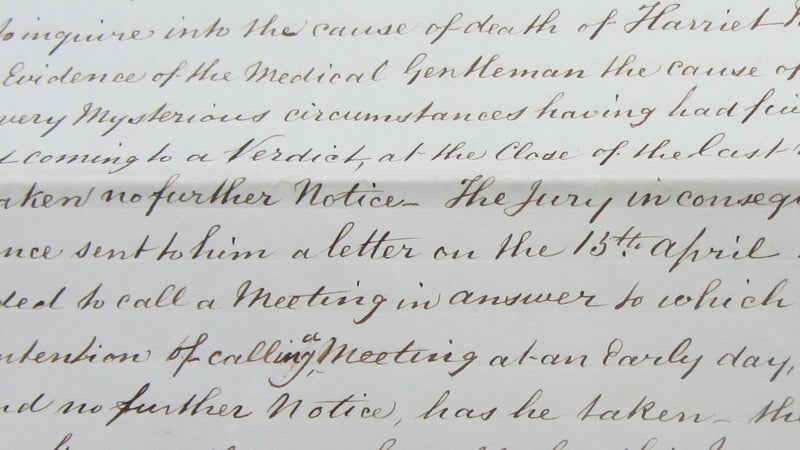 to inquire into the cause of death of Harriet
Evidence of the Medical Gentleman the cause of
very Mysterious circumstances having had five
coming to a Verdict, at the Close of the last
aken no further Notice – The Jury in consequ
nce sent to him a letter on the 15th. April
ded to call a Meeting in answer to which
ntention of calling a Meeting at an Early day,
nd no further Notice, has he taken – the